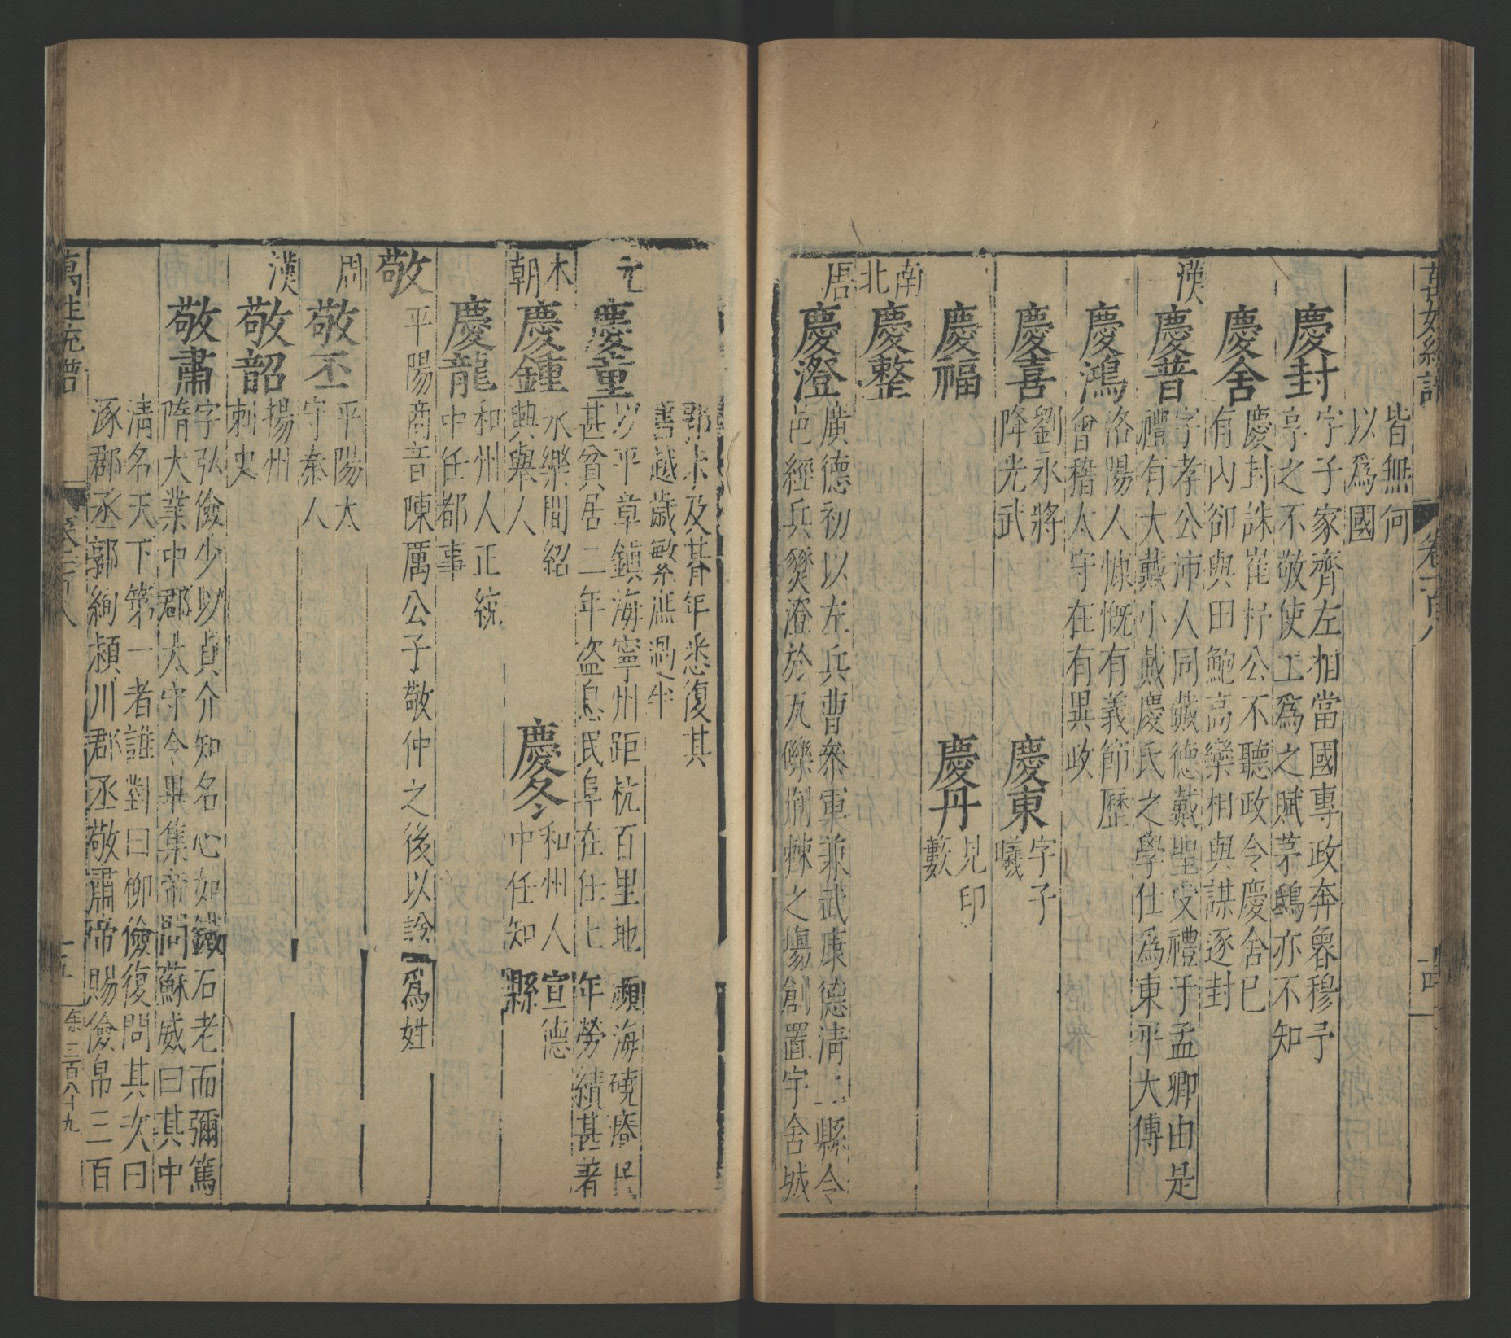 皆無何
以爲國
慶封
字子家齊左相當國專政奔魯穆子
享之不敬使工爲之賦茅鴟亦不知
慶舍
慶封誅崔杼公不聽政令慶舍已
有內卻與田鮑高欒相與謀逐封
漢
慶普
字孝公沛人同戴德戴聖受禮于孟卿由是
禮有大戴小戴慶氏之學仕爲東平大傅
慶鴻
洛陽人慷慨有義節歷
會稽太守在有異政
慶喜
劉永將
降光武
慶東
字子
曦
慶福
慶丹
見印
藪
南北
慶整
唐
慶澄
廣德初以左兵曹叅軍兼武康德清二縣令
邑經兵燹澄於瓦礫荊棘之塲創置宇舍城
郭未及朞年悉復其
舊越歲繁庶過半
元
慶童
以平章鎮海寧州距杭百里地瀕海磽瘠民
甚貧居二年盜息民阜在任七年勞績甚著
本朝
慶鍾
永樂間紹
興輿人
慶冬
和州人宣德
中任知縣
慶龍
和州人正統
中任都事
敬
平陽商音陳厲公子敬仲之後以謚爲姓
周
敬丕
平陽太
守秦人
漢
敬韶
揚州
刺史
敬肅
字弘儉少以貞介知名心如鐵石老而彌篤
隋大業中郡太守令畢集帝問蘇威曰其中
清名天下第一者誰對曰柳儉復問其次曰
涿郡丞郭絢潁川郡丞敬肅帝賜儉帛三百
萬姓統譜
十五
三百八十九